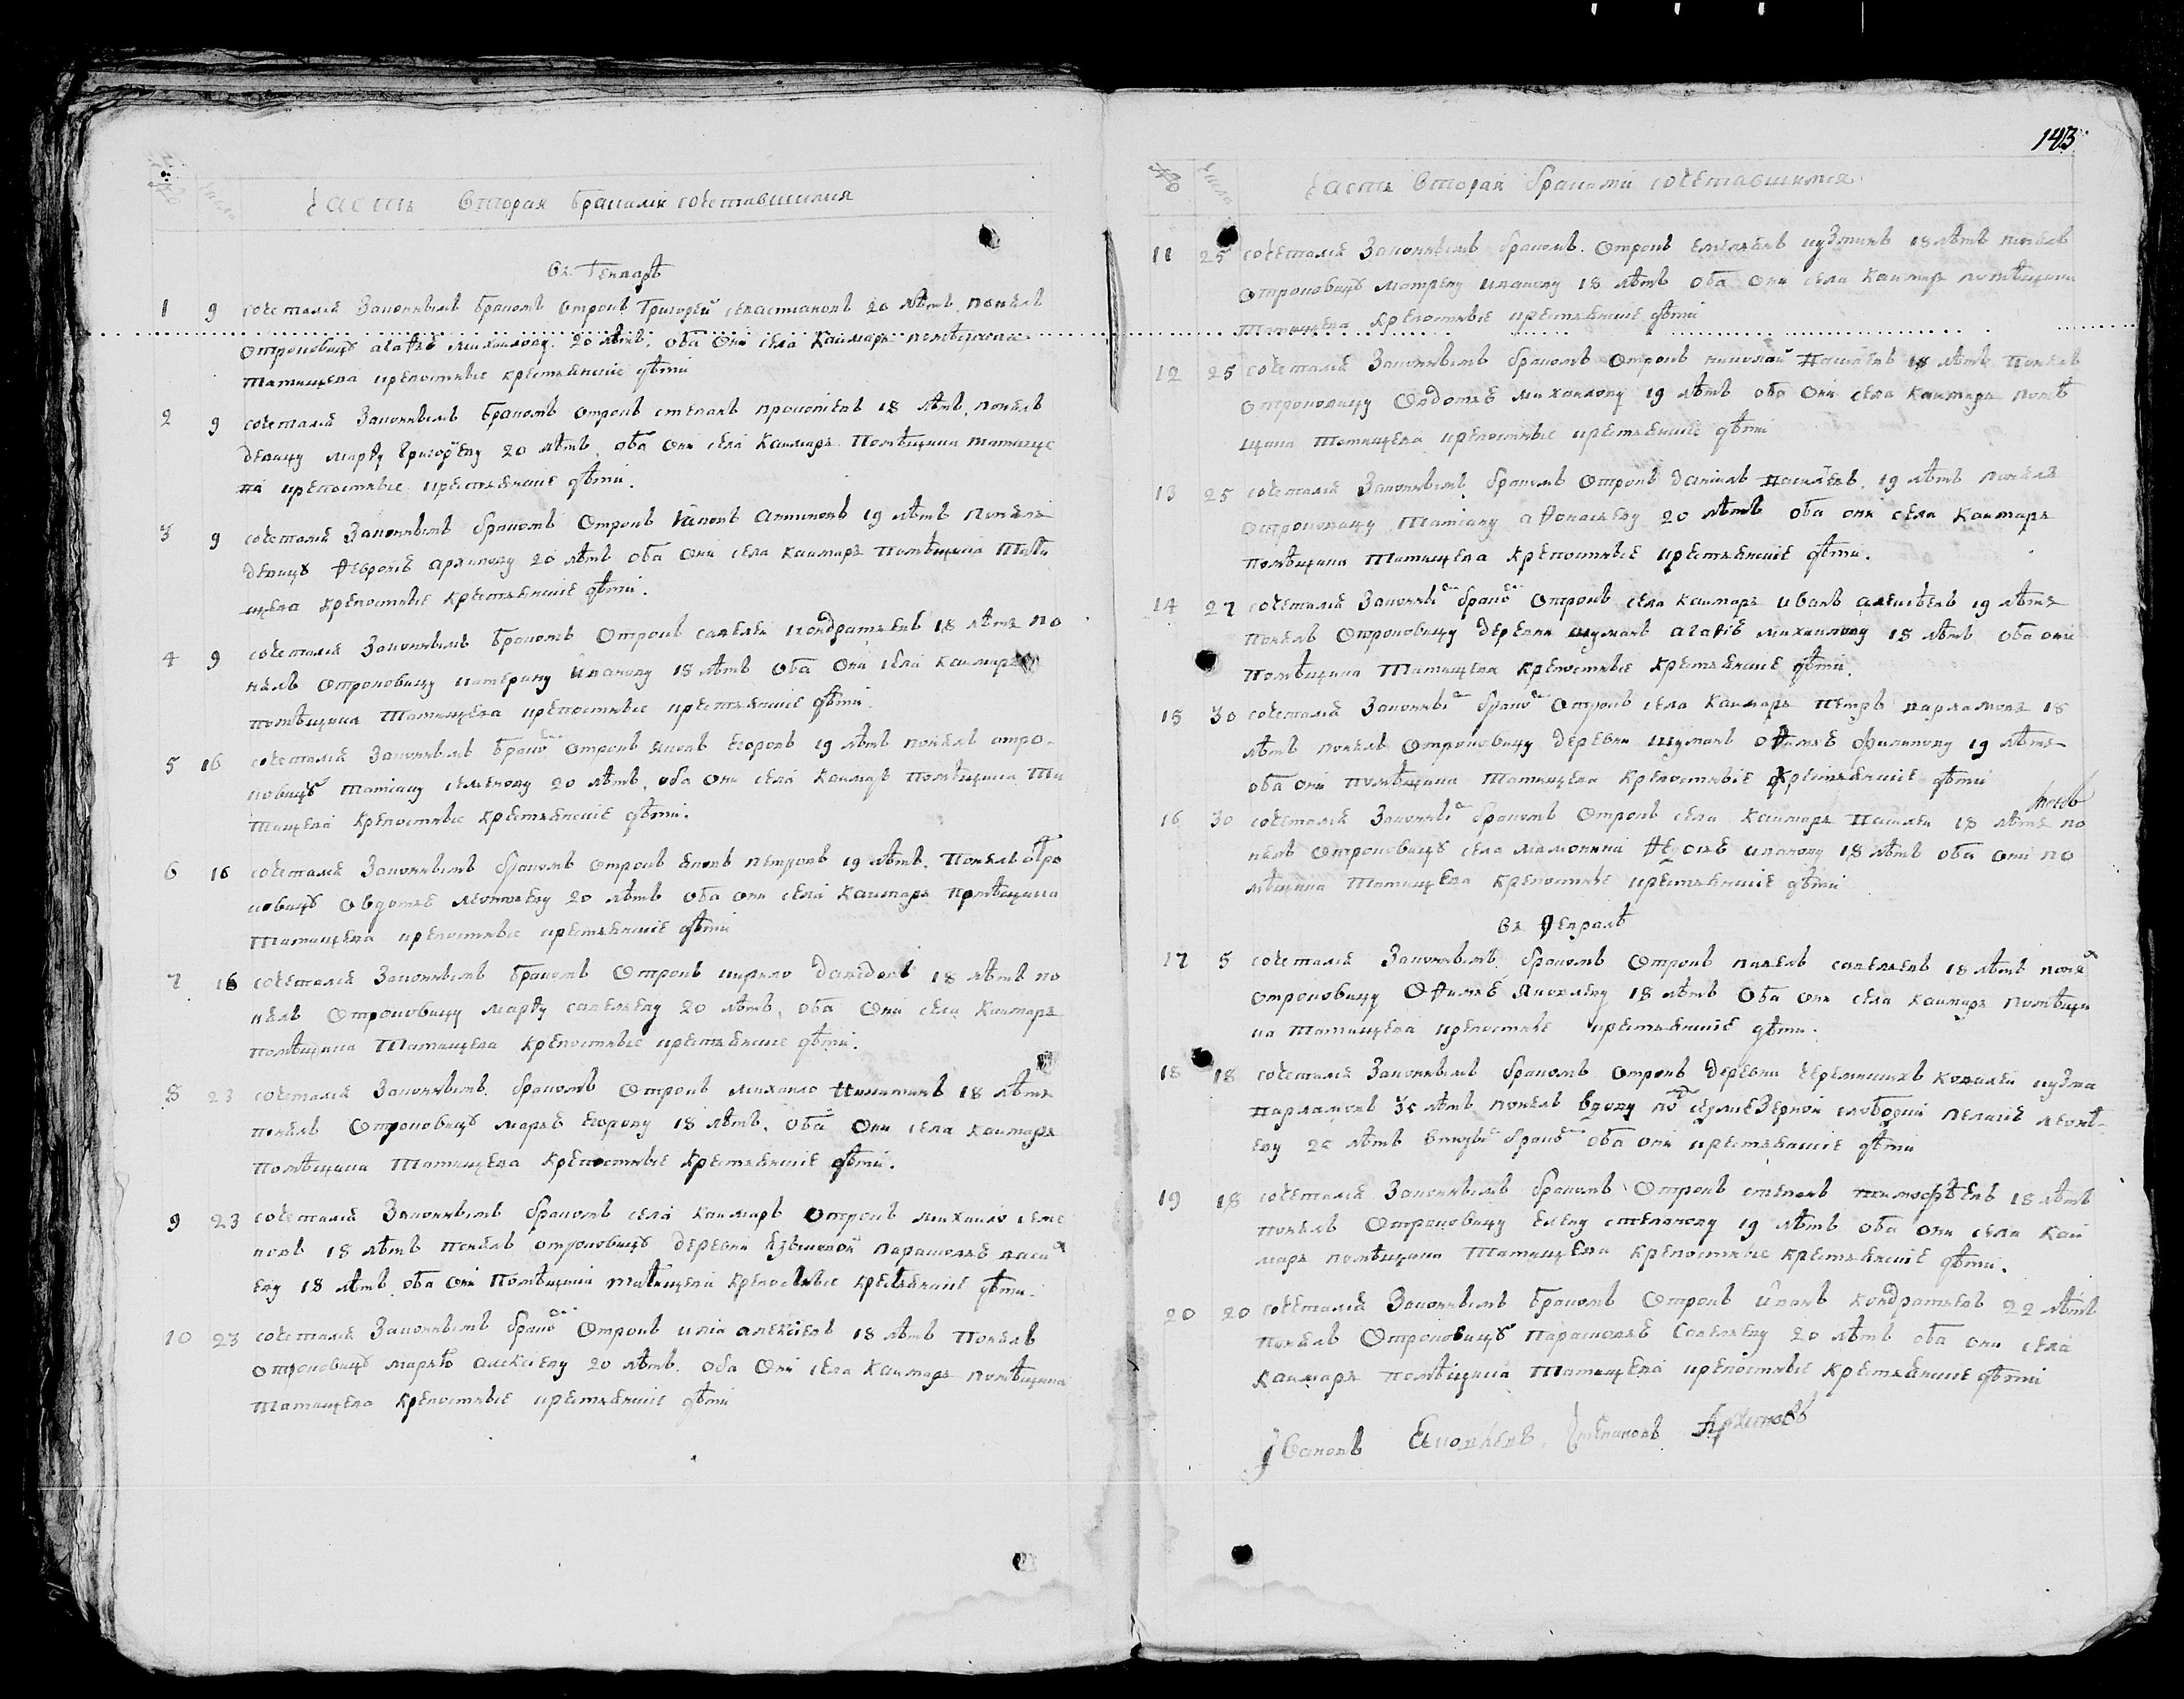 Часть вторая браками сочетавшимся
въ Генварѣ
1 9 сочетался законнымъ бракомъ отрокъ Григорей севастиановъ 20 лѣтъ. понялъ
отроковицу агафью михаилову 20 лѣтъ, оба они села Каимаръ помѣщика
татищева крепостные крестьянские дѣти
2 9 сочетался законнымъ бракомъ отрокъ степанъ прокопиевъ 18 лѣтъ, понялъ
девицу марфу григорьеву 20 лѣтъ. оба они села Каимаръ помѣщика татище
ва крепостные крестьянские дѣти.
3 9 сочетался законнымъ бракомъ отрокъ антиповъ 19 лѣтъ понялъ
девицу февронью архипову 20 лѣтъ оба они села каимаръ помѣщика тати
щева крепостные крестьянские дѣти.
4 9 сочетался законнымъ бракомъ отрокъ савелеи кондратьевъ 18 лѣтъ по
нялъ отроковицу катерину иванову 18 лѣтъ оба они села каимаръ
помѣщика татищева крепостные крестьянские дѣти.
5 16 сочетался законнымъ бракомъ отрокъ яковъ егоровъ 19 лѣтъ понялъ отро-
ковицу татиану семенову 20 лѣтъ, оба они села каимаръ помѣщика та
тищева крепостные крестьянские дѣти.
6 16 сочетался законнымъ бракомъ отрокъ петровъ 19 лѣтъ. понялъ отро
ковицу овдотью леонтьеву 20 лѣтъ оба они села каимаръ помѣщика
татищева крепостные крестьянские дѣти
7 16 сочетался законнымъ бракомъ отрокъ кирило давидовъ 18 лѣтъ по
нялъ отроковицу марфу савельеву 20 лѣтъ, оба они села каимаръ
помѣщика татищева крепостные крестьянские дѣти.
8 23 сочетался законнымъ бракомъ отрокъ михаило никитинъ 18 лѣтъ
понялъ отроковицу марью егорову 18 лѣтъ. оба они села каимаръ
помѣщика татищева крепостные крестьянские дѣти.
9 23 сочетался законнымъ бракомъ села каимаръ отрокъ михаило семе
новъ 18 лѣтъ понялъ отроковицу деревни парасковью василь
еву 18 лѣтъ. оба они помѣщика татищева крепостные крестьянские дѣти.
10 23 сочетался законнымъ бракомъ отрокъ илиа алексиевъ 18 лѣтъ понялъ
отроковицу марью алексиеву 20 лѣтъ. оба они села каимаръ помѣщика
татищева крепостные крестьянские дѣти
143
Часть вторая браками сочетавшимся
11 25 сочетался законнымъ бракомъ. отрокъ емельянъ кузминъ 18 лѣтъ понялъ
отроковицу матрену иванову 18 лѣтъ оба они села каимаръ помѣщика
татищева крепостные крестьянские дѣти
12 25 сочетался законнымъ бракомъ отрокъ николай васильевъ 18 лѣтъ понялъ
отроковицу овдотью михаилову 19 лѣтъ оба они села каимаръ помѣ
щика татищева крепостные крестьянские дѣти
13 25 сочетался законнымъ бракомъ отрокъ данилъ васильевъ. 19 лѣтъ понялъ
отроковицу татиану афонасьеву 20 лѣтъ оба они села каимаръ
помѣщика татищева крепостные крестьянские дѣти.
14 27 сочетался законнымъ бракомъ отрокъ села каимаръ иванъ алексѣевъ 19 лѣтъ
понялъ отроковицу деревни шуманъ агафью михаилову 18 лѣтъ оба они
помѣщика татищева крепостные крестьянские дѣти.
15 30 сочетался законнымъ бракомъ отрокъ села каимаръ петръ варламовъ 18
лѣтъ понялъ отроковицу деревни шуманъ офимью филипову 19 лѣтъ
оба они помѣщика татищева крепостные крестьянские дѣти
16 30 сочетался законнымъ бракомъ отрокъ села каимаръ василеи 18 лѣтъ по
нялъ отроковицу села мамонина иванову 18 лѣтъ оба они по
мѣщика татищева крепостные крестьянские дѣти
въ Февралѣ
17 5 сочетался законнымъ бракомъ отрокъ павелъ савельевъ 18 лѣтъ понялъ
отроковицу офимью яковлеву 18 лѣтъ оба они села каимаръ помѣщи
ка татищева крепостные крестьянские дѣти.
18 18 сочетался законнымъ бракомъ отрокъ деревни кузма
варламовъ лѣтъ понялъ вдову семиезерной слободки пелагию
еву лѣтъ бракомъ оба они крестьянские дѣти
19 18 сочетался законнымъ бракомъ отрокъ степанъ тимофѣевъ 18 лѣтъ
понялъ отроковицу елену степанову 19 лѣтъ оба они села каи
маръ помѣщика татищева крепостные крестьянские дѣти.
20 20 сочетался законнымъ бракомъ отрокъ иванъ кондратьевъ 22 лѣтъ
понялъ отроковицу парасковью савельеву 20 лѣтъ оба они села
каимаръ помѣщика татищева крепостные крестьянские дѣти
Ивановъ Яковлевъ, Степановъ Архиповъ